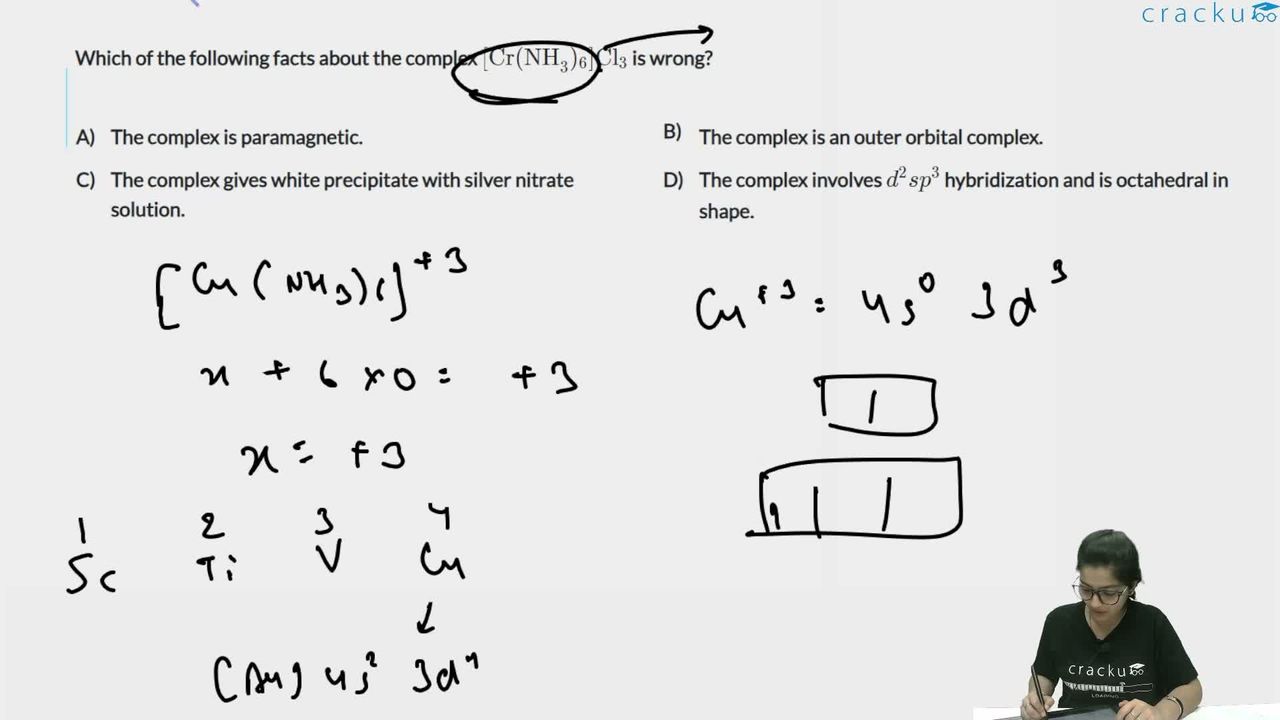 cracku
Which of the following facts about the complex [Cr(NH₃)₆]Cl₃ is wrong?
A) The complex is paramagnetic.
B) The complex is an outer orbital complex.
C) The complex gives white precipitate with silver nitrate
solution.
D) The complex involves d²sp³ hybridization and is octahedral in
shape.
[Cr(NH₃)₆]⁺³
x + 6 × 0 = +3
x = +3
1 2 3 4
Sc Ti V Cr
↓
[Ar] 4s² 3d⁴
Cr⁺³ = 4s⁰ 3d³
cracku
LOADING